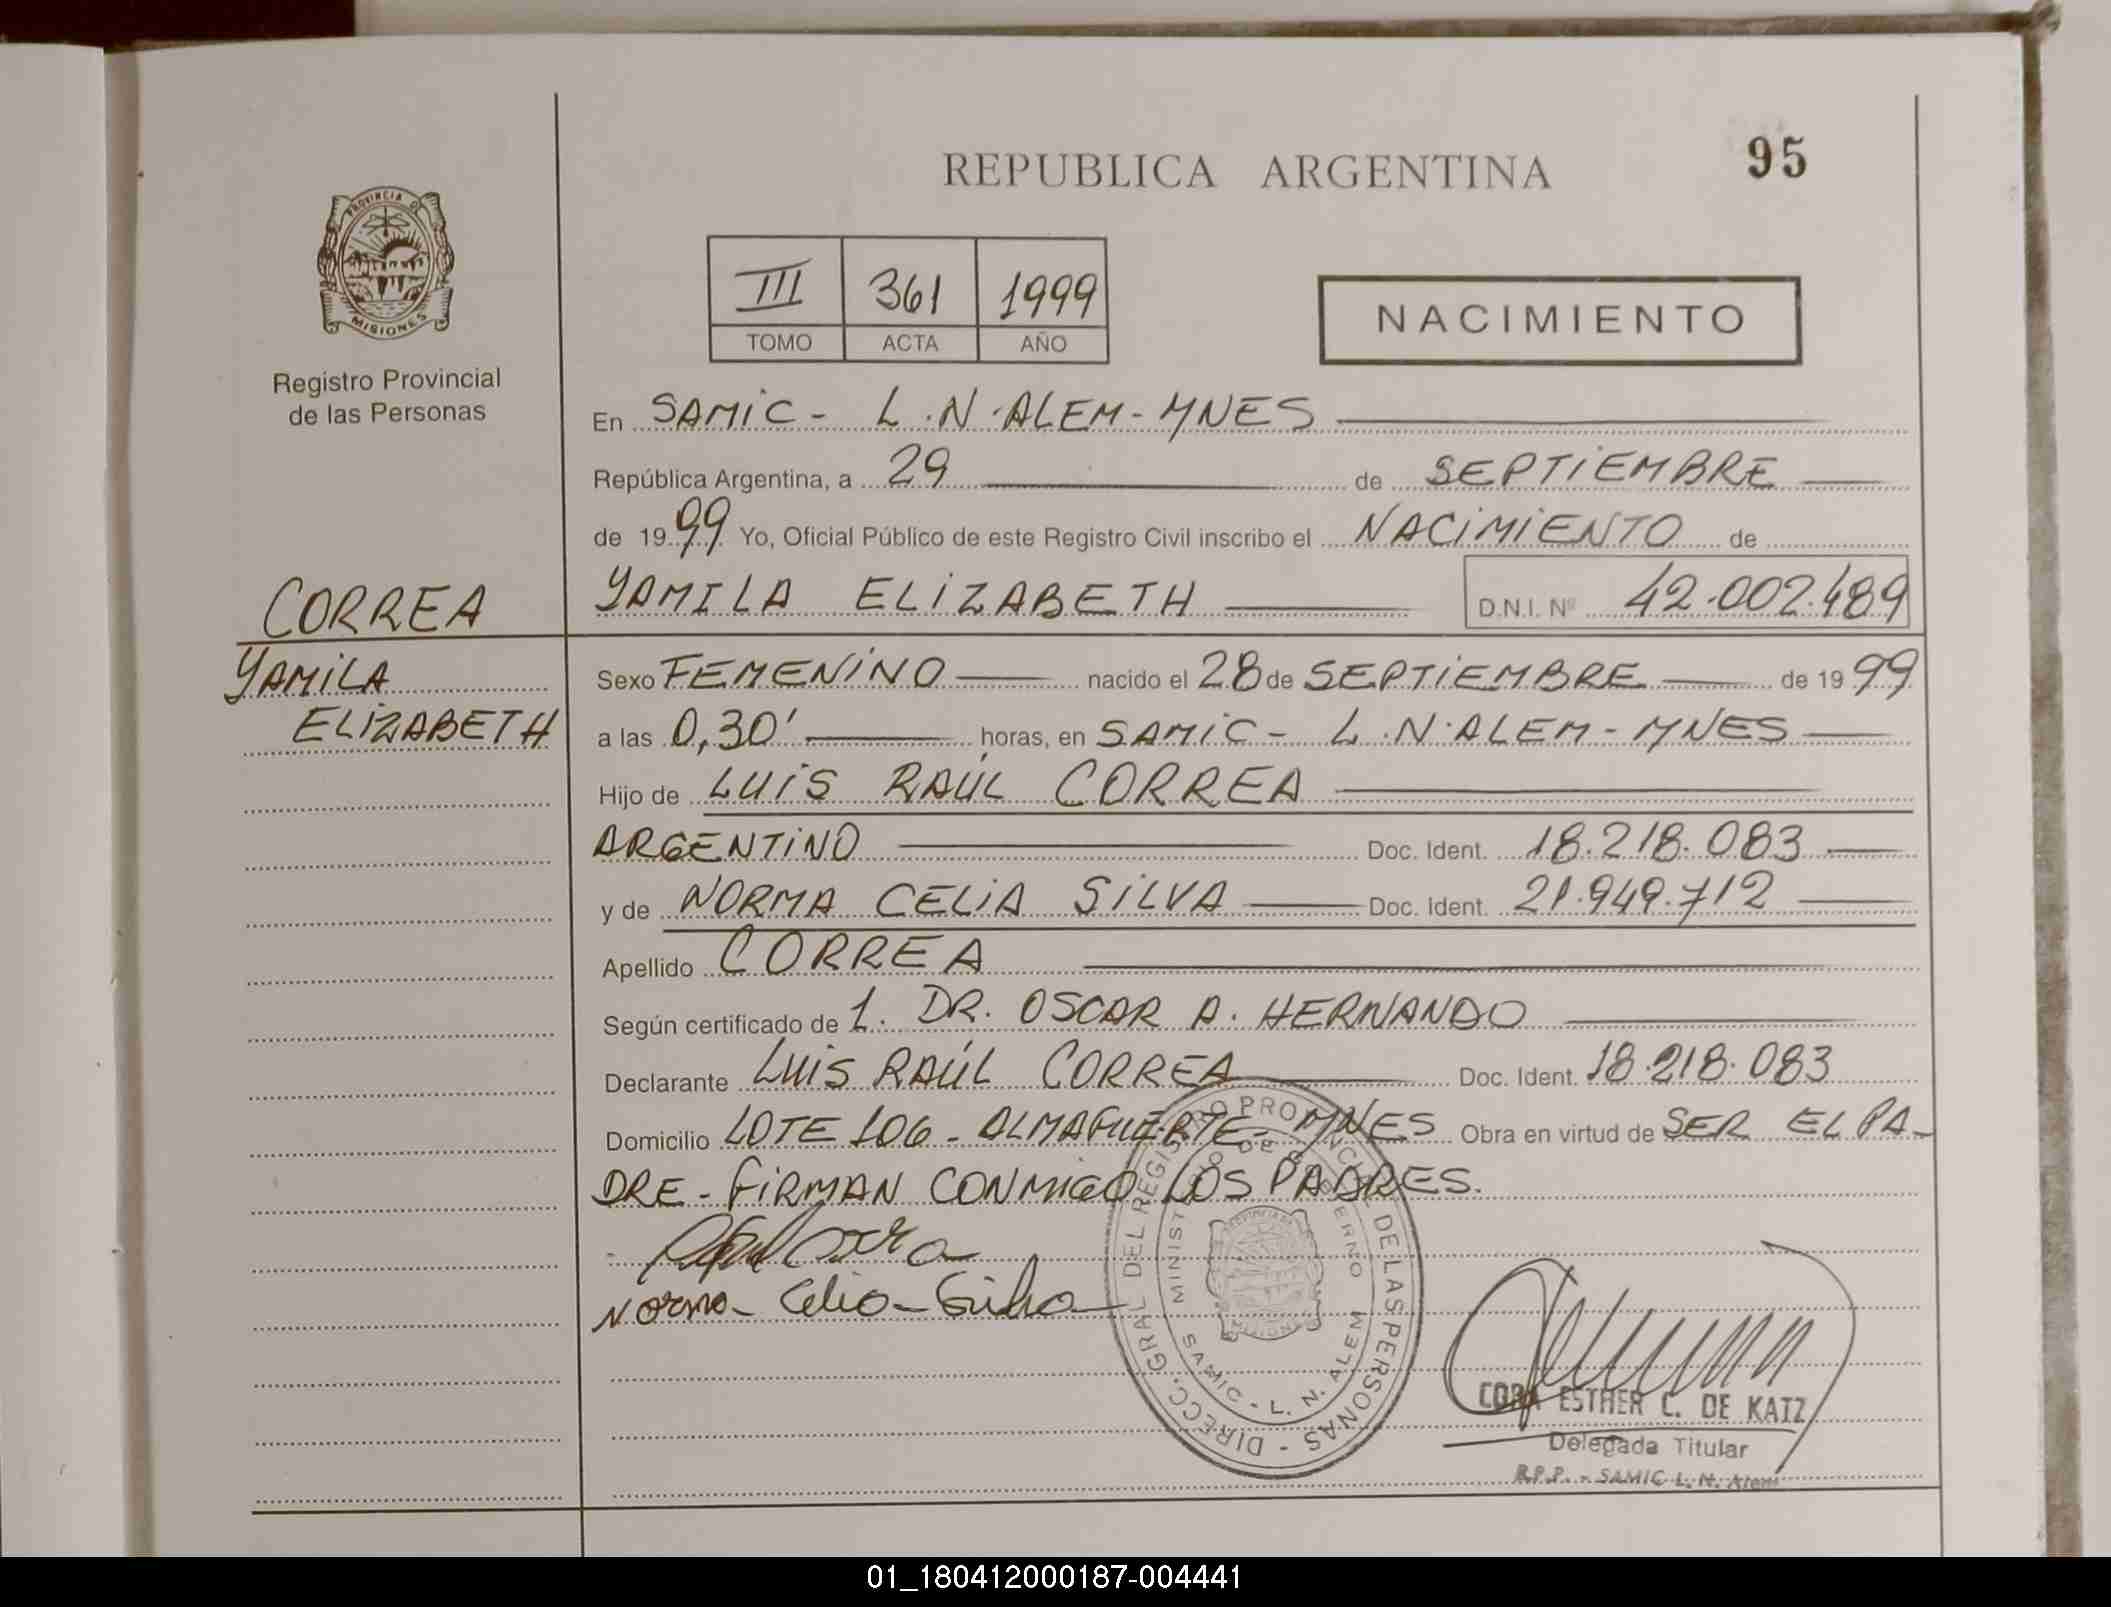 REPUBLICA ARGENTINA
95
PROVINCIA DE
MISIONES
Registro Provincial
de las Personas
III 361 1999
TOMO ACTA AÑO
NACIMIENTO
En SAMIC - L.N.ALEM - MNES
República Argentina, a 29 de SEPTIEMBRE
de 1999 Yo, Oficial Público de este Registro Civil inscribo el NACIMIENTO de
CORREA
YAMILA ELIZABETH D.N.I. Nº 42.002.489
YAMILA
ELIZABETH
Sexo FEMENINO nacido el 28 de SEPTIEMBRE de 1999
a las 0,30' horas, en SAMIC - L.N.ALEM - MNES
Hijo de LUIS RAÚL CORREA
ARGENTINO Doc. Ident. 18.218.083
y de NORMA CELIA SILVA Doc. Ident. 21.949.712
Apellido CORREA
Según certificado de 1. DR. OSCAR A. HERNANDO
Declarante LUIS RAÚL CORREA Doc. Ident. 18.218.083
Domicilio LOTE 106 - ALMAFUERTE - MNES Obra en virtud de SER EL PA-
DRE - FIRMAN CONMIGO LOS PADRES.
Norma - Celia - Silva
DIRECC. GRAL DEL REGISTRO PROVINCIAL DE LAS PERSONAS -
MINISTERIO DE GOBIERNO
SAMIC - L. N. ALEM
CORA ESTHER C. DE KATZ
Delegada Titular
R.P.P. - SAMIC L. N. Alem
01_180412000187-004441